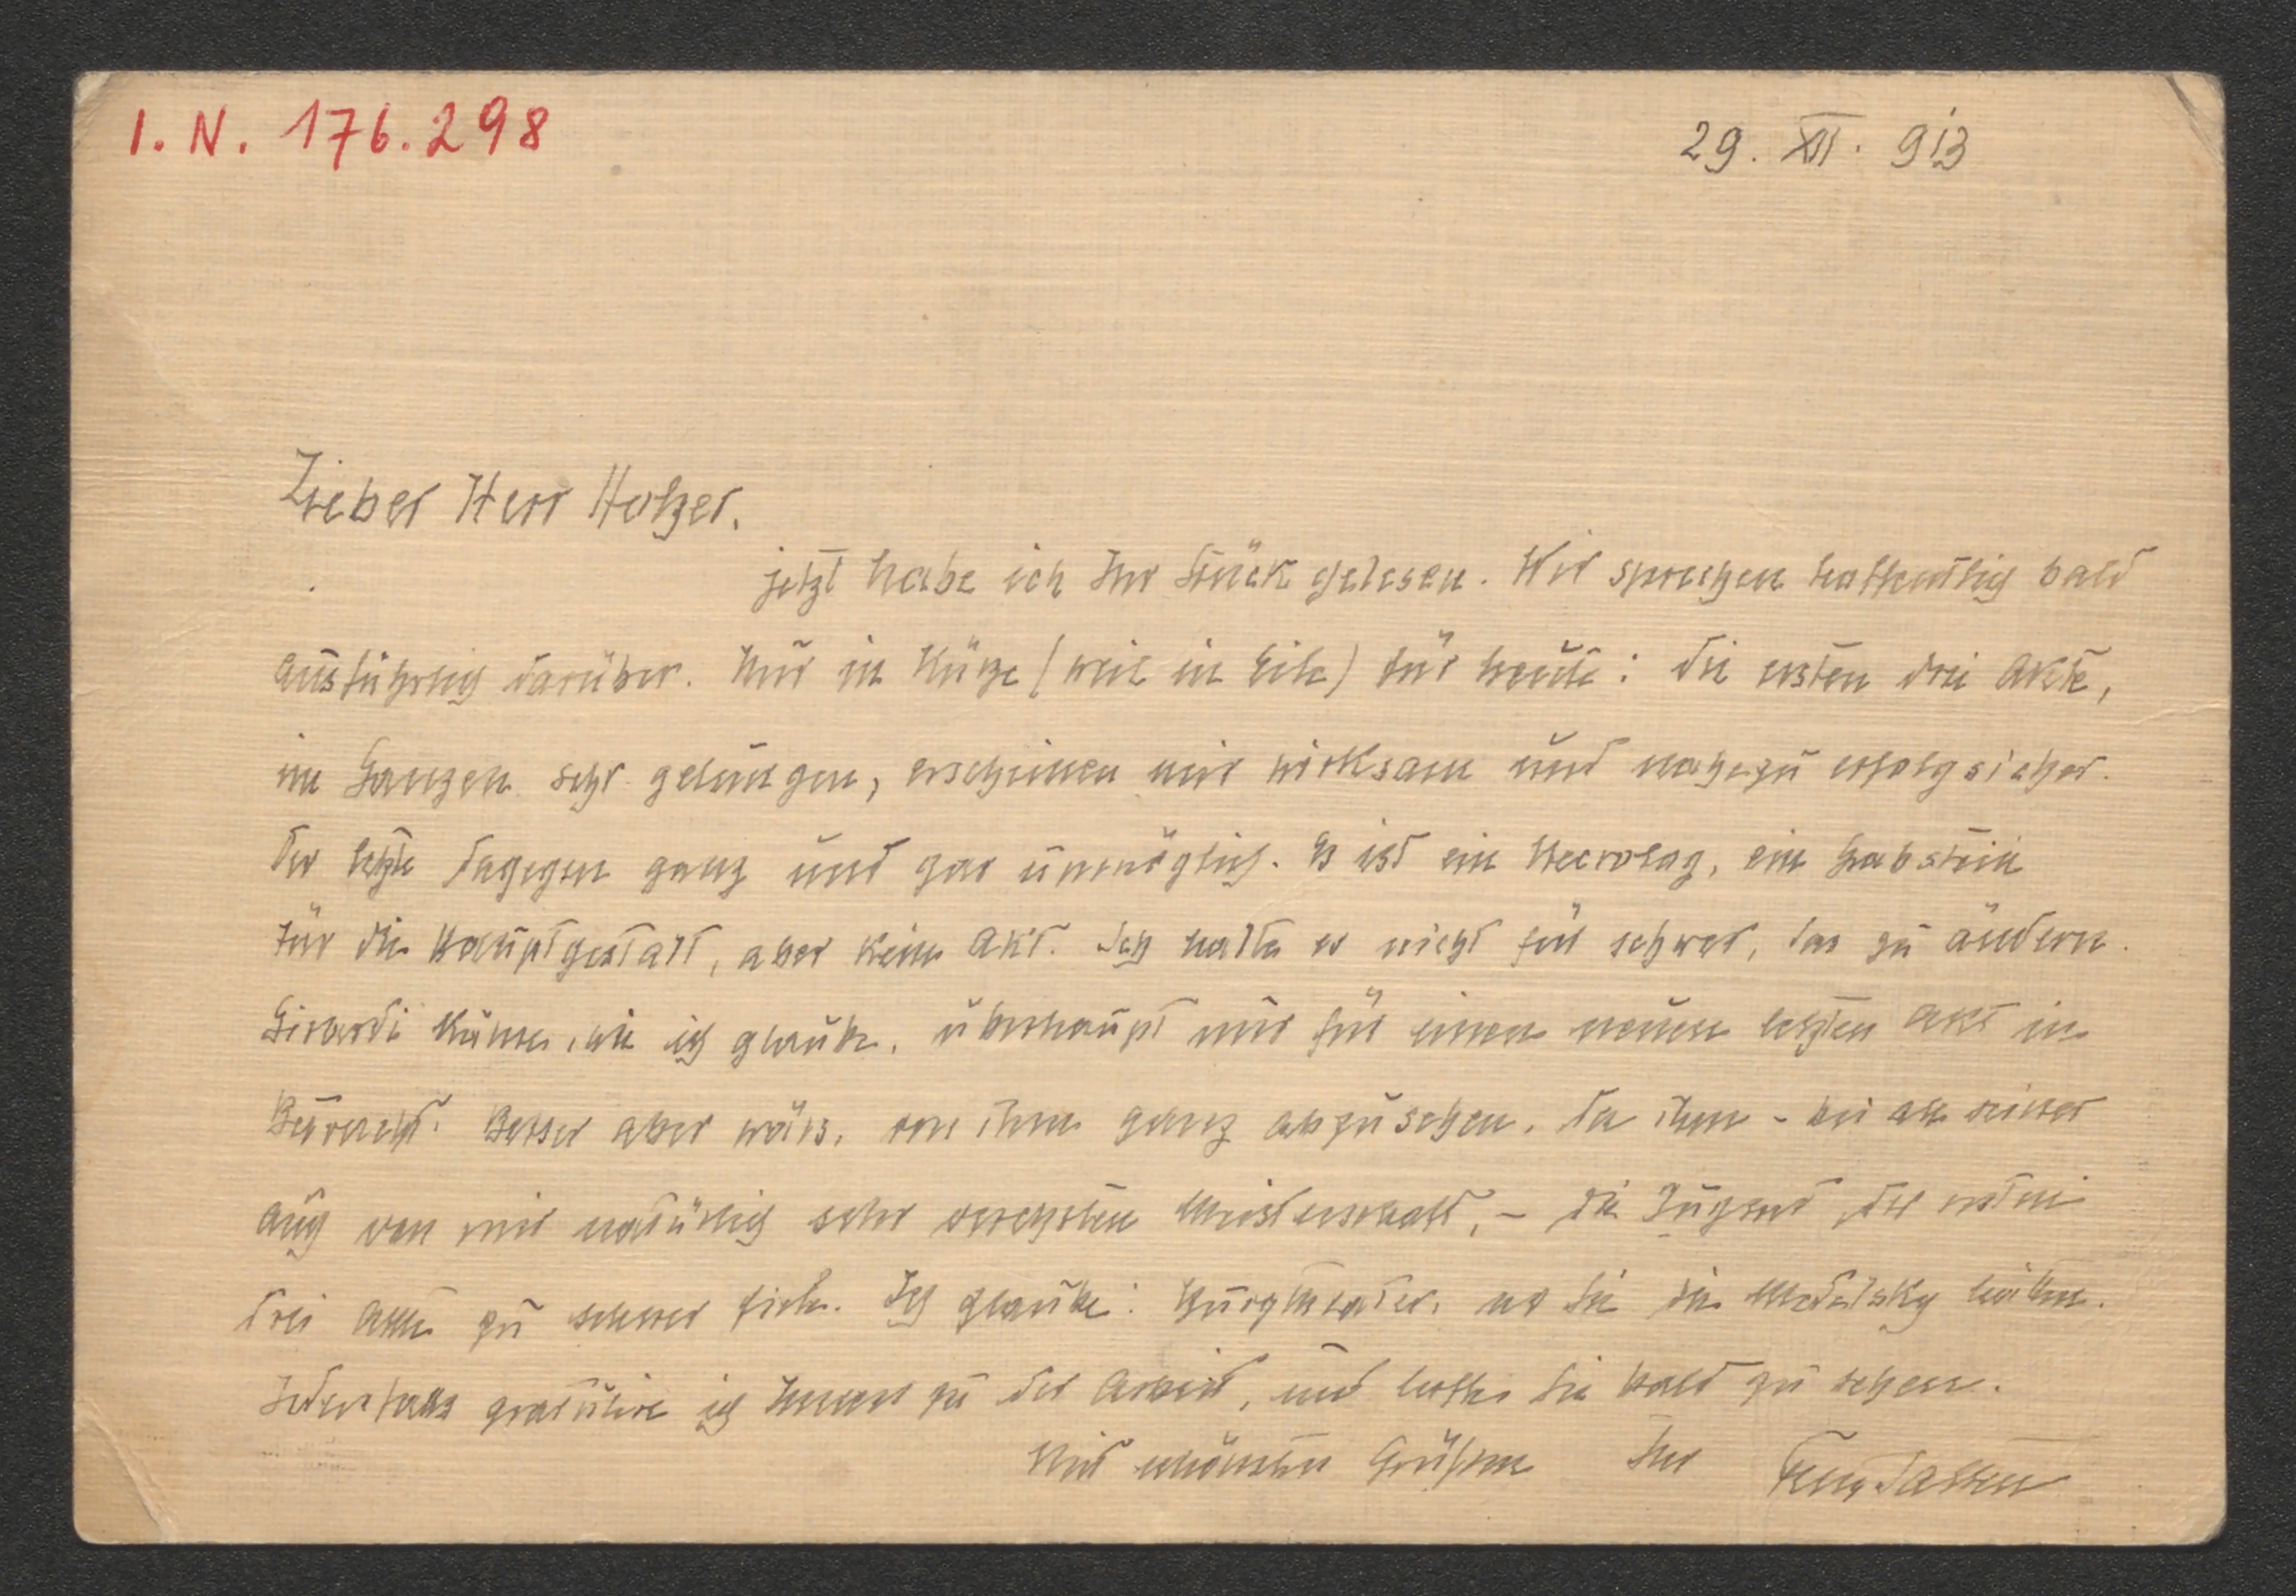 I. N. 176.298
29. XII. 913
Lieber Herr Holzer,
jetzt habe ich Ihr Stück gelesen. Wir sprechen hoffentlich bald
ausführlich darüber. Nur in Kürze (weil in Eile) für heute: die ersten drei Akte,
im Ganzen sehr gelungen, erscheinen mir wirksam und nahezu erfolgsicher.
Der letzte dagegen ganz und gar unmöglich. Es ist ein Necrolog, ein Grabstein
für die Hauptgestalt, aber kein Akt. Ich halte es nicht für schwer, das zu ändern.
Girardi käme, wie ich glaube, überhaupt nur für einen neuen letzten Akt in
Betracht. Besser aber wärs, von ihm ganz abzusehen, da ihm - bei all seiner
auch von mir natürlich sehr verehrten Meisterschaft, - die Jugend der ersten
drei Akte zu schwer fiele. Ich glaube: Burgtheater, wo Sie die Medelsky hätten.
Jedenfalls gratulire ich Ihnen zu der Arbeit, und hoffe Sie bald zu sehen.
Mit schönsten Grüßen Ihr Felix Salten